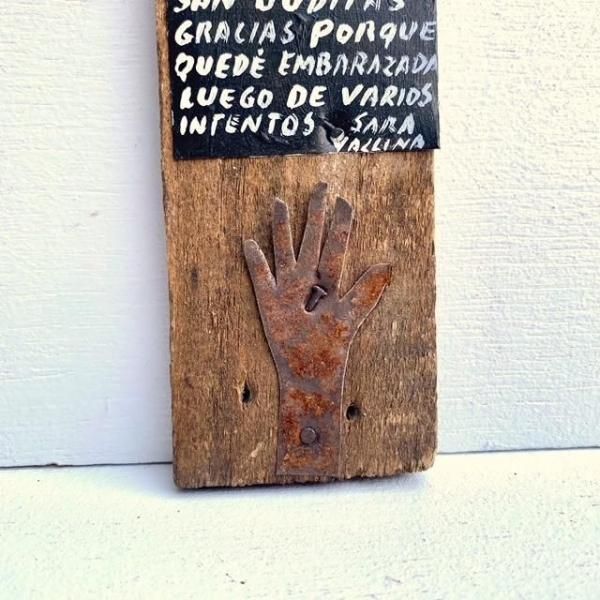 SAN JUDITAS
GRACIAS PORQUE
QUEDÉ EMBARAZADA
LUEGO DE VARIOS
INTENTOS SARA
VALLINA